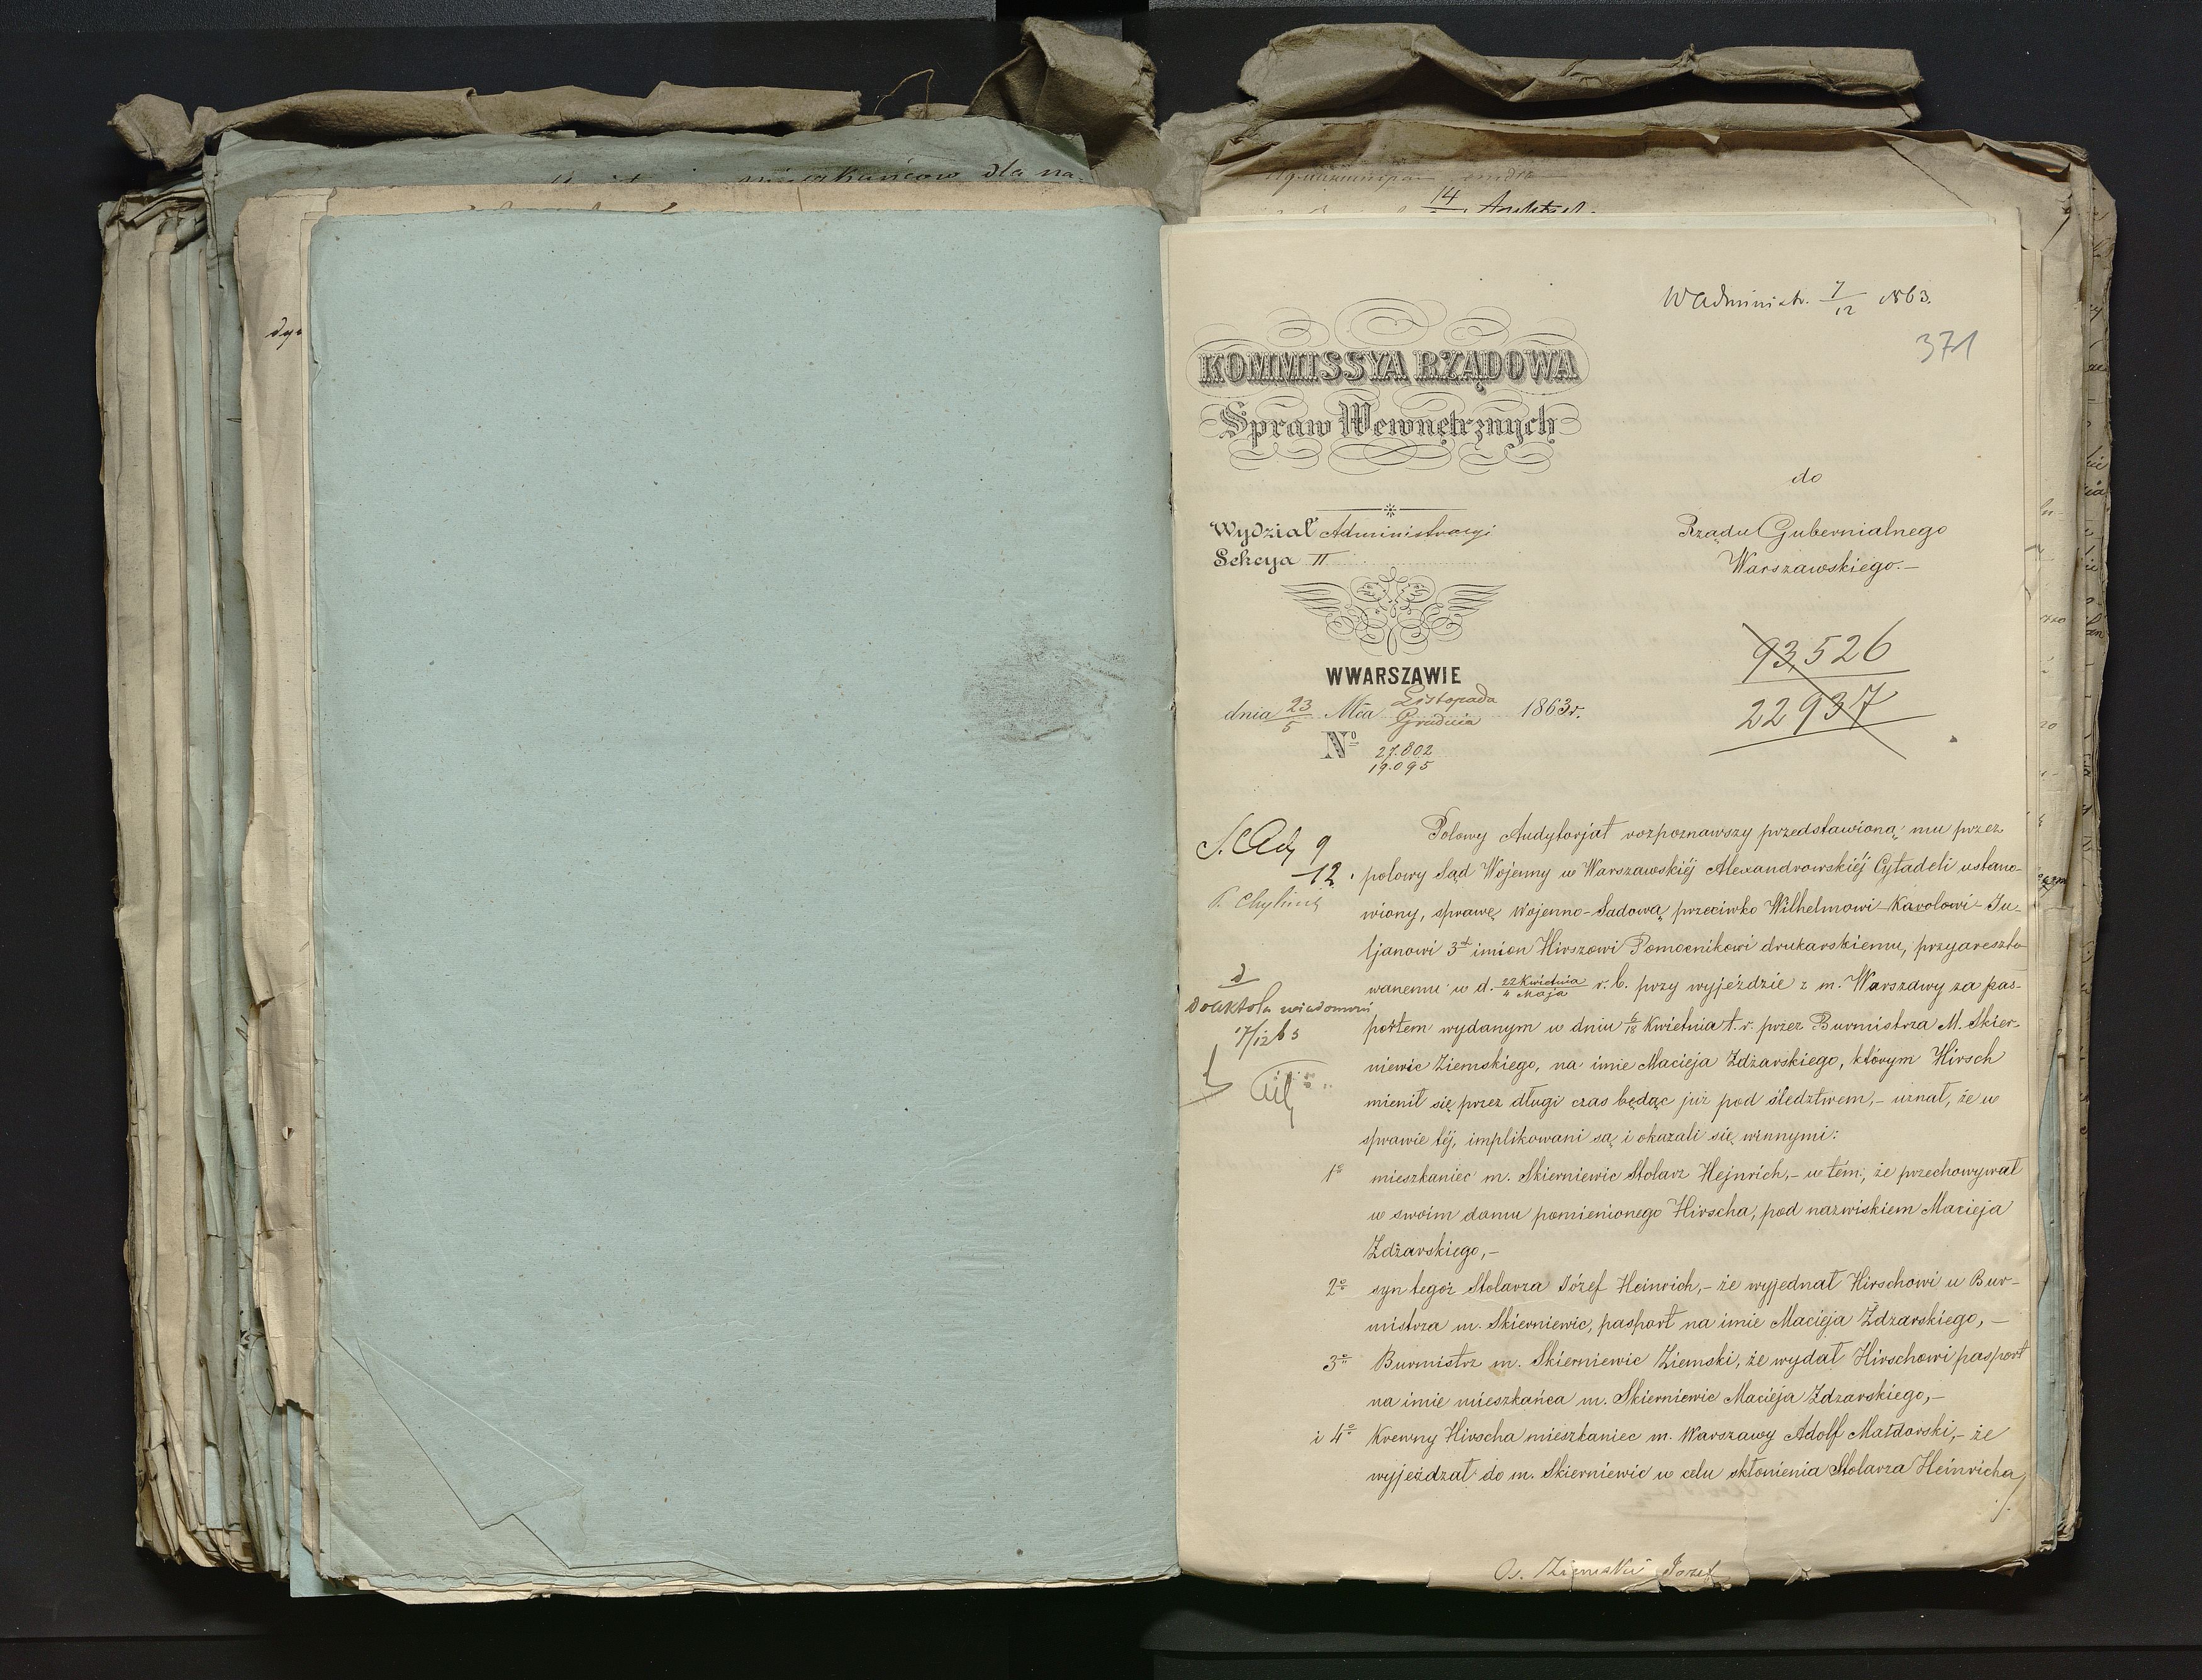 mieszkańców dla na-
14
dy
W Administr. 7/12 1863.
371
KOMMISSYA RZĄDOWA
Spraw Wewnętrznych
do
Wydział Administracyi
Rządu Gubernialnego
Sekcya II
Warszawskiego.—
W WARSZAWIE
93,526
22937
dnia 23/5 Mca Listopada/Grudnia 1863 r.
No 27.802
19.095
S. Adm 9
12
d
do akt dla wiadomości
17/12 63
Polowy Audytorjat rozpoznawszy przedstawioną mu przez
polowy Sąd Wojenny w Warszawskiéj Alexandrowskiéj Cytadeli ustano-
wiony, sprawę Wojenno-Sadową przeciwko Wilhelmowi-Karolowi-Ju-
ljanowi 3ch imion Hirszowi Pomocnikowi drukarskiemu, przyareszto-
wanemu w d. 22 Kwietnia/4 Maja r. b. przy wyjeździe z m. Warszawy za pas-
portem wydanym w dniu 6/18 Kwietnia t. r. przez Burmistrza M. Skier-
niewic Ziemskiego, na imie Macieja Zdżarskiego, którym Hirsch
mienił się przez długi czas będąc już pod śledztwem,- uznał, że w
sprawie téj, implikowani są i okazali się winnymi:
1o mieszkaniec m. Skierniewic Stolarz Hejnrich,- w tém, że przechowywał
w swoim domu pomienionego Hirscha, pod nazwiskiem Macieja
Zdżarskiego,-
2o syn tegoż Stolarza Józef Heinrich,- że wyjednał Hirschowi u Bur-
mistrza m. Skierniewic, pasport na imie Macieja Zdzarskiego,—
3o Burmistrz m. Skierniewic Ziemski, że wydał Hirschowi pasport
na imie mieszkańca m. Skierniewic Macieja Zdzarskiego,-
i 4o Krewny Hirscha mieszkaniec m. Warszawy Adolf Małdorski,- że
wyjeżdzał do m. Skierniewic w celu skłonienia Stolarza Heinricha
./.
Os. Ziemski Józef